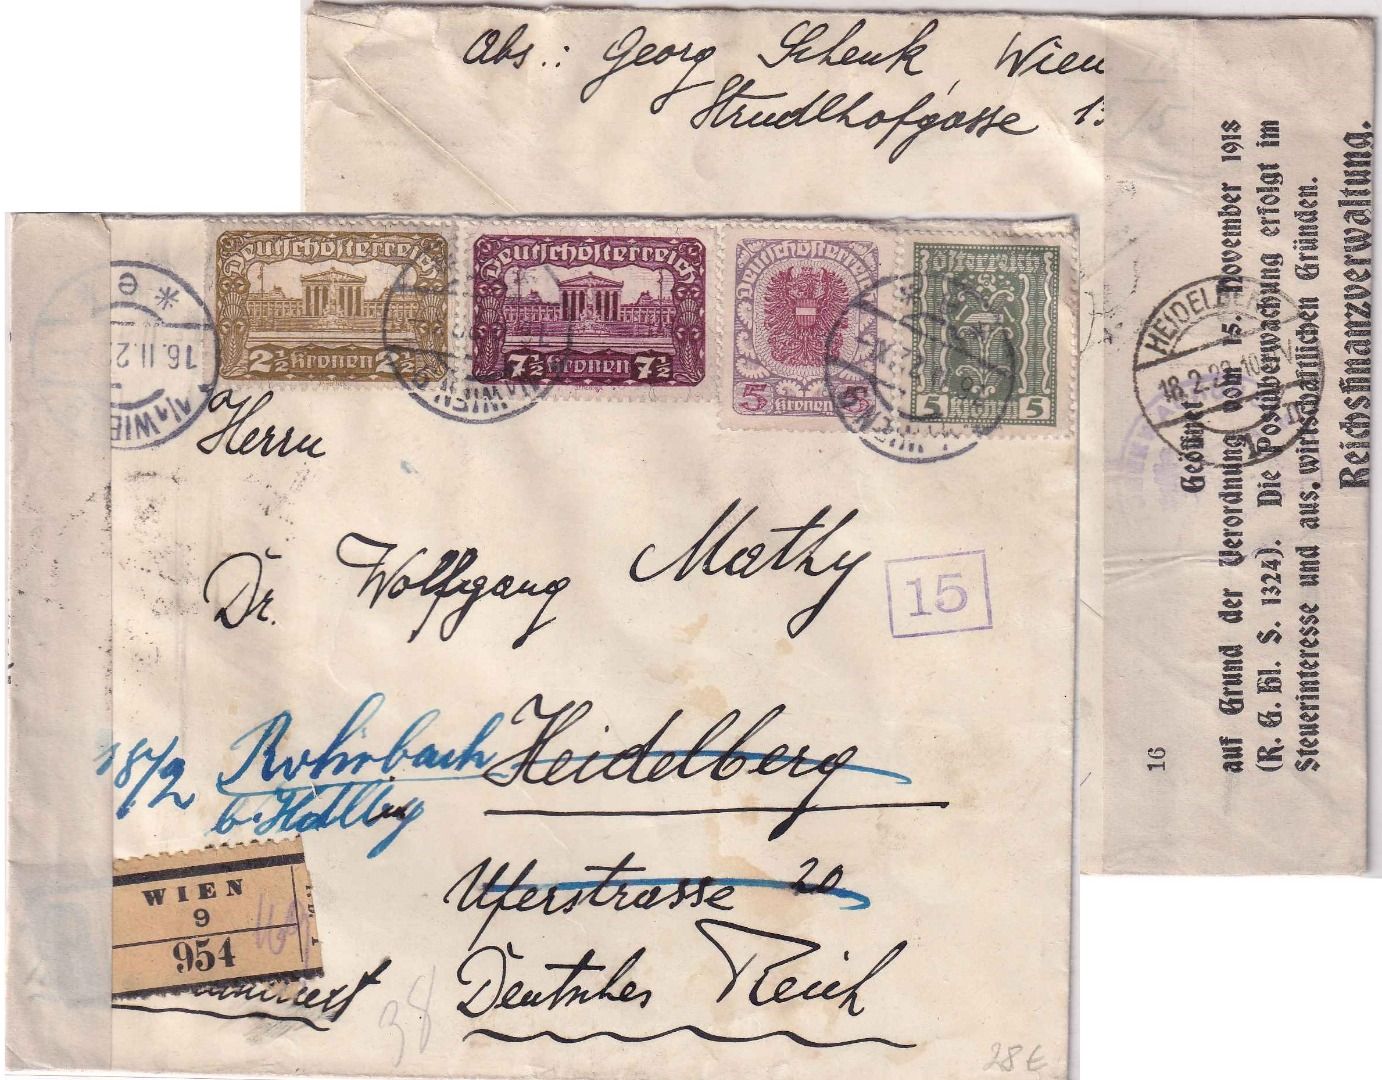 Abs.: Georg Schenk, Wien
Strudlhofgasse 13
Deutschösterreich
2½ Kronen 2½
Deutschösterreich
7½ Kronen 7½
Deutschösterreich
5 Kronen 5
Österreich
5 Kronen 5
16.II.2
WIE
WIEN
WIEN
Herrn
Dr. Wolfgang Mathy
15
18/2 Rohrbach Heidelberg
b. Hdlbg
Uferstrasse 20
Deutsches Reich
WIEN
9
954
38
28 €
HEIDELBE
18.2.22.10
Geöffnet
auf Grund der Verordnung vom 15. November 1918
(R. G. Bl. S. 1324). Die Postüberwachung erfolgt im
Steuerinteresse und aus wirtschaftlichen Gründen.
Reichsfinanzverwaltung.
16